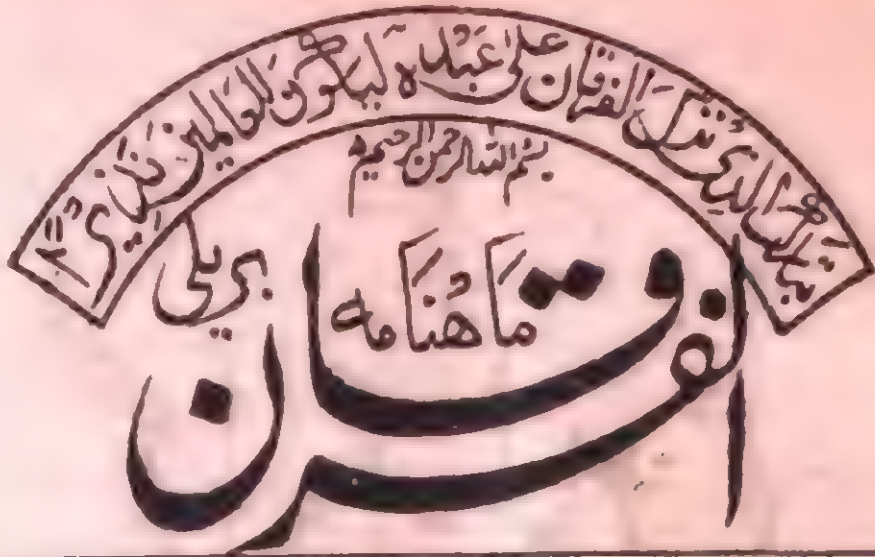 تبارك الذی نزل الفرقان علیٰ عبدہ لیکون للعالمین نذیرًا
بسم اللہ الرحمن الرحیم
ماھنامه
الفرقان
بریلی